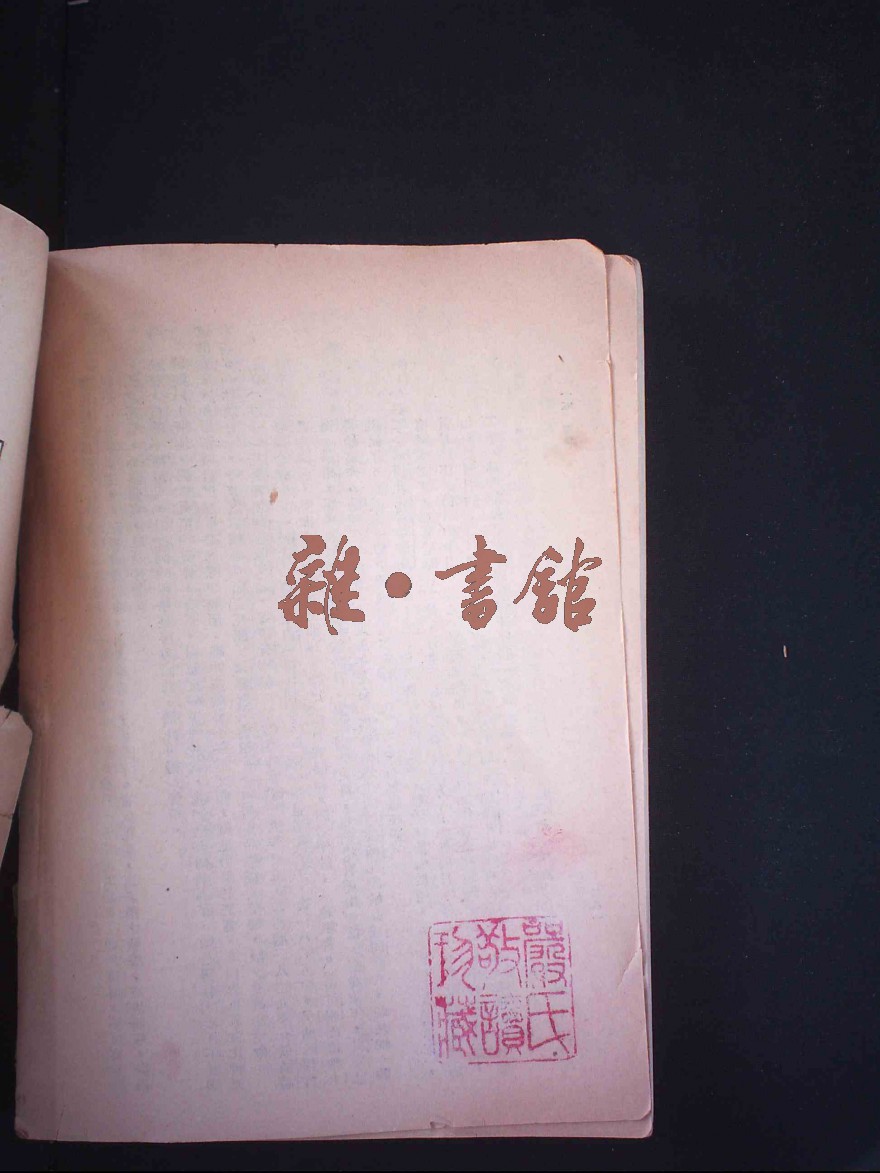 雜·書館
嚴氏
敬讀
珍藏